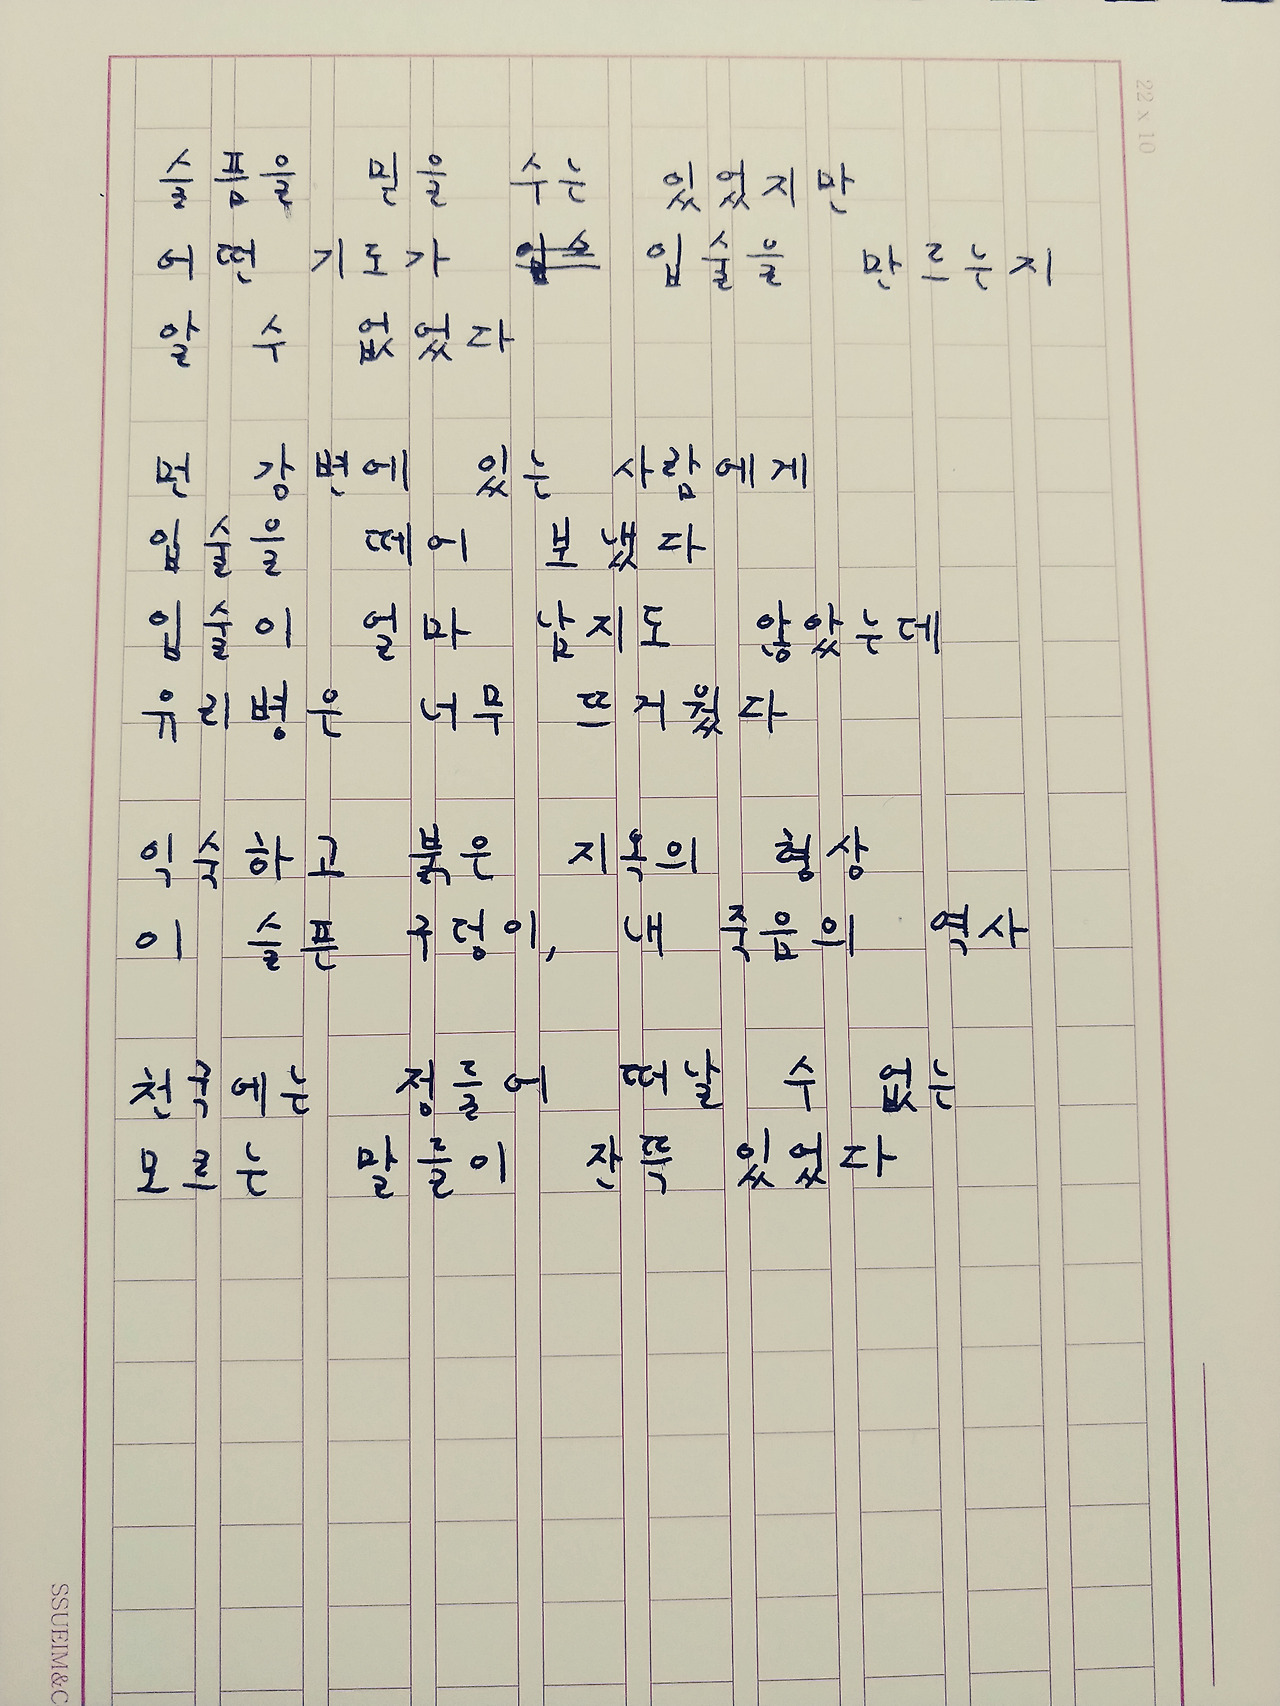 22 x 10
슬픔을 믿을 수는 있었지만
어떤 기도가 입스 입술을 만르는지
알 수 없었다
먼 강변에 있는 사람에게
입술을 떼어 보냈다
입술이 얼마 남지도 않았는데
유리병은 너무 뜨거웠다
익숙하고 붉은 지옥의 형상
이 슬픈 구덩이, 내 죽음의 역사
천국에는 정들어 떠날 수 없는
모르는 말들이 잔뜩 있었다
SSUEIM&C